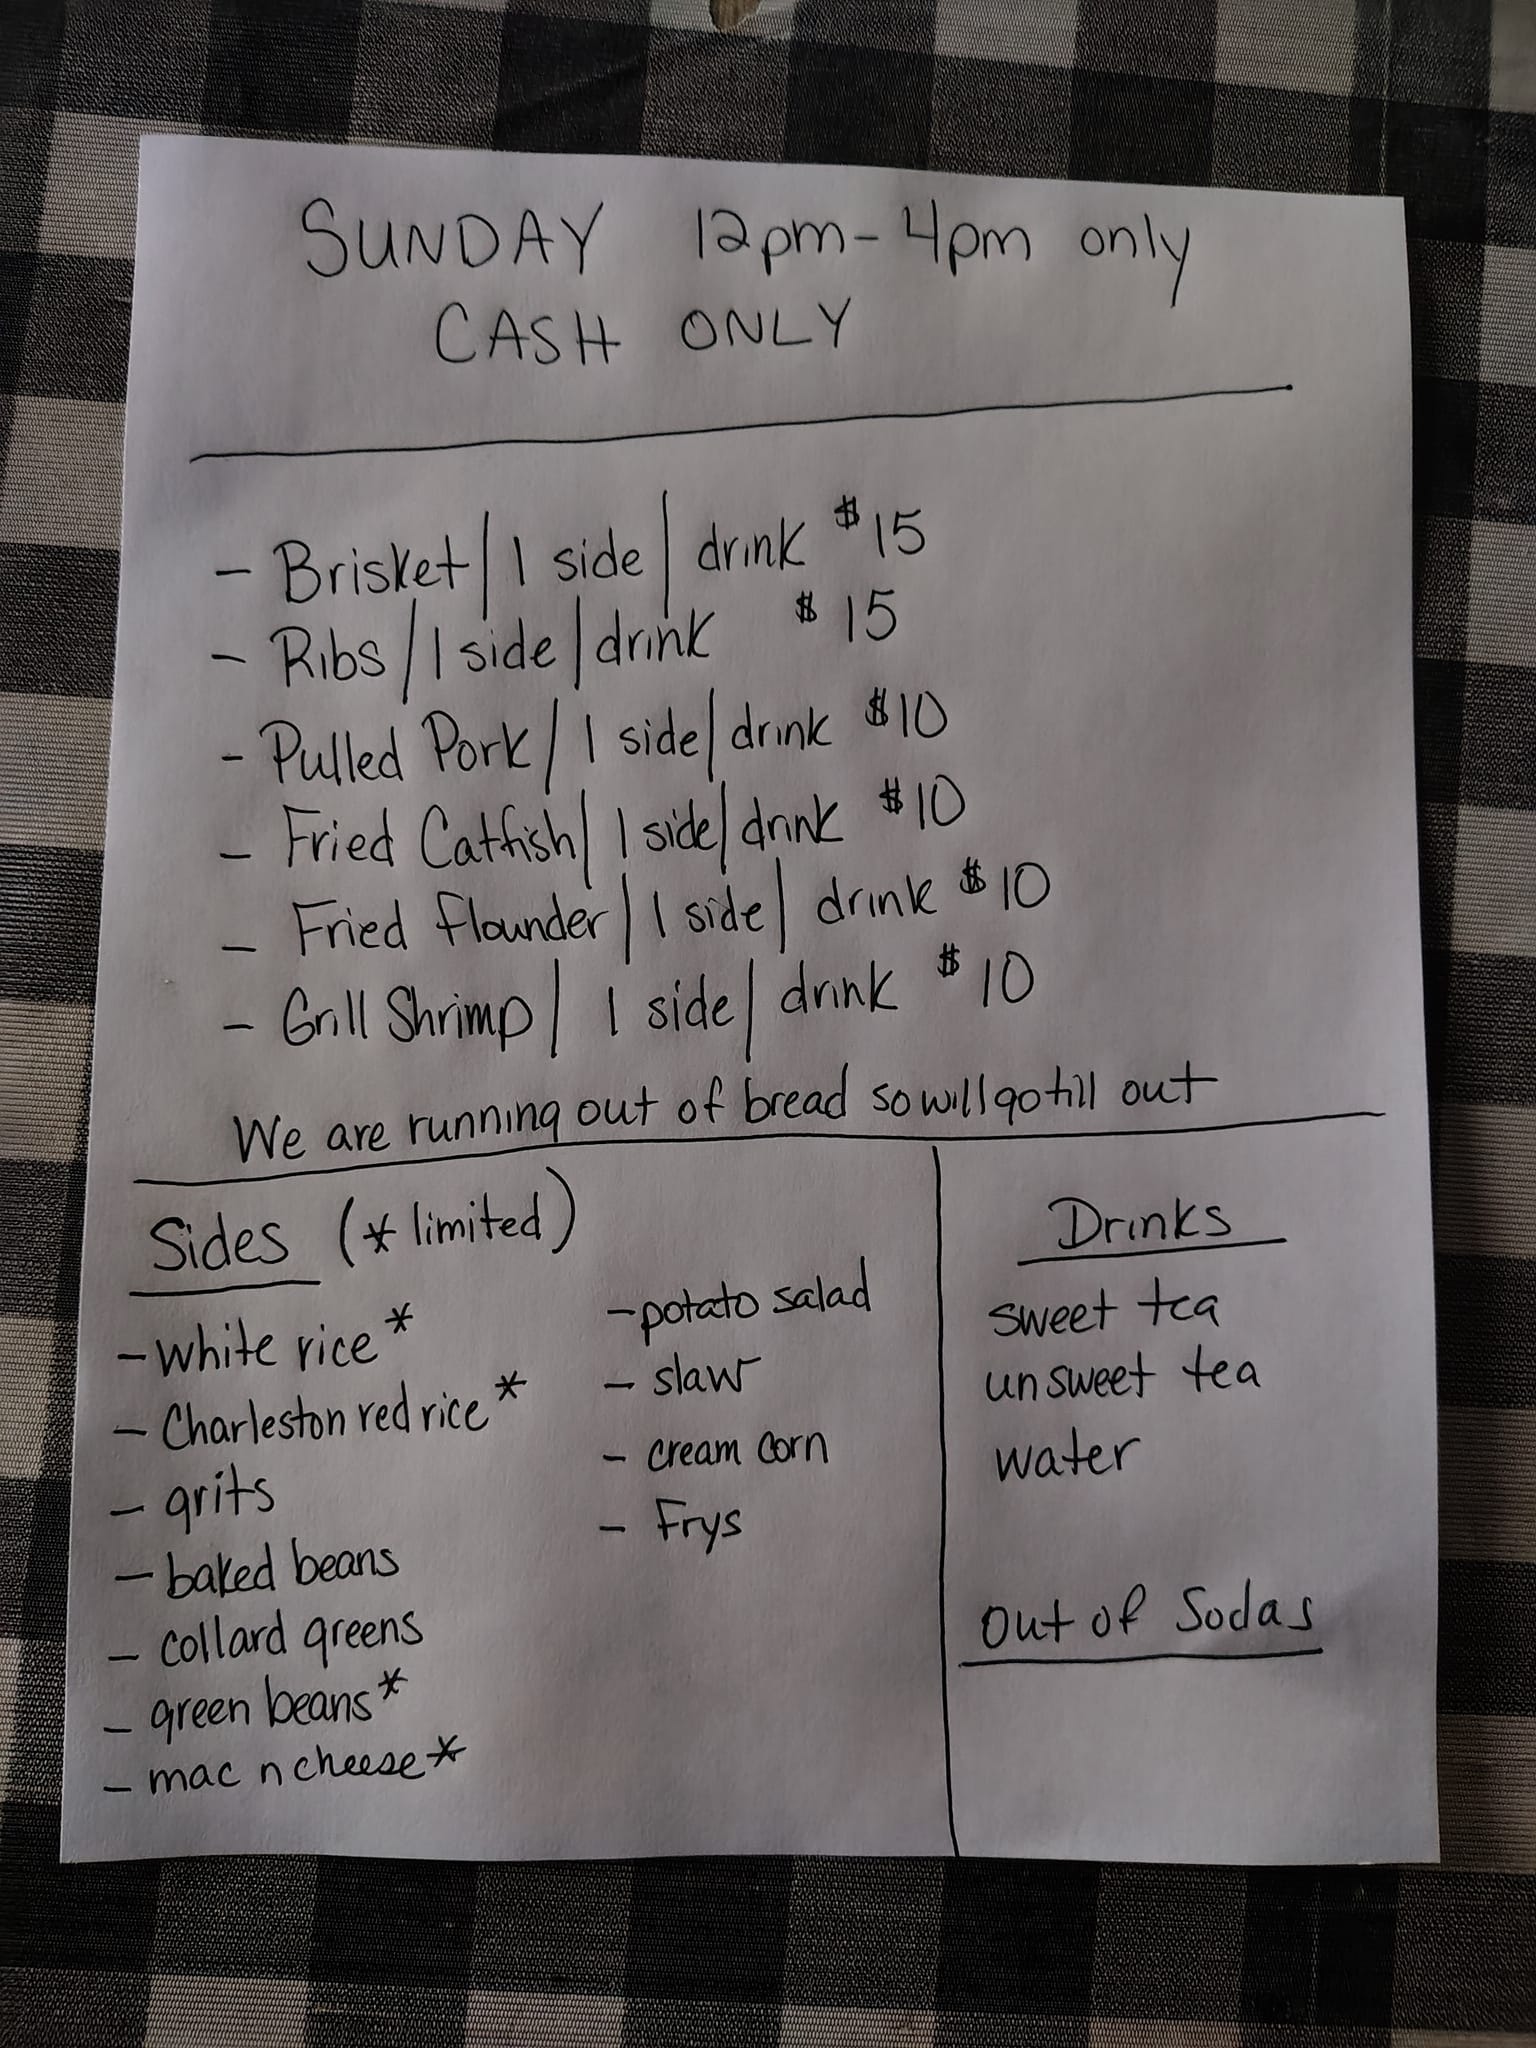 SUNDAY 12pm-4pm only
CASH ONLY
- Brisket/1 side/drink $15
- Ribs/1 side/drink $15
- Pulled Pork/1 side/drink $10
- Fried Catfish/1 side/drink $10
- Fried flounder/1 side/drink $10
- Grill Shrimp/1 side/drink $10
We are running out of bread so will go till out
Sides (* limited)
- white rice *
- Charleston red rice *
- grits
- baked beans
- collard greens
- green beans *
- mac n cheese *
- potato salad
- slaw
- cream corn
- Frys
Drinks
sweet tea
unsweet tea
water
out of Sodas